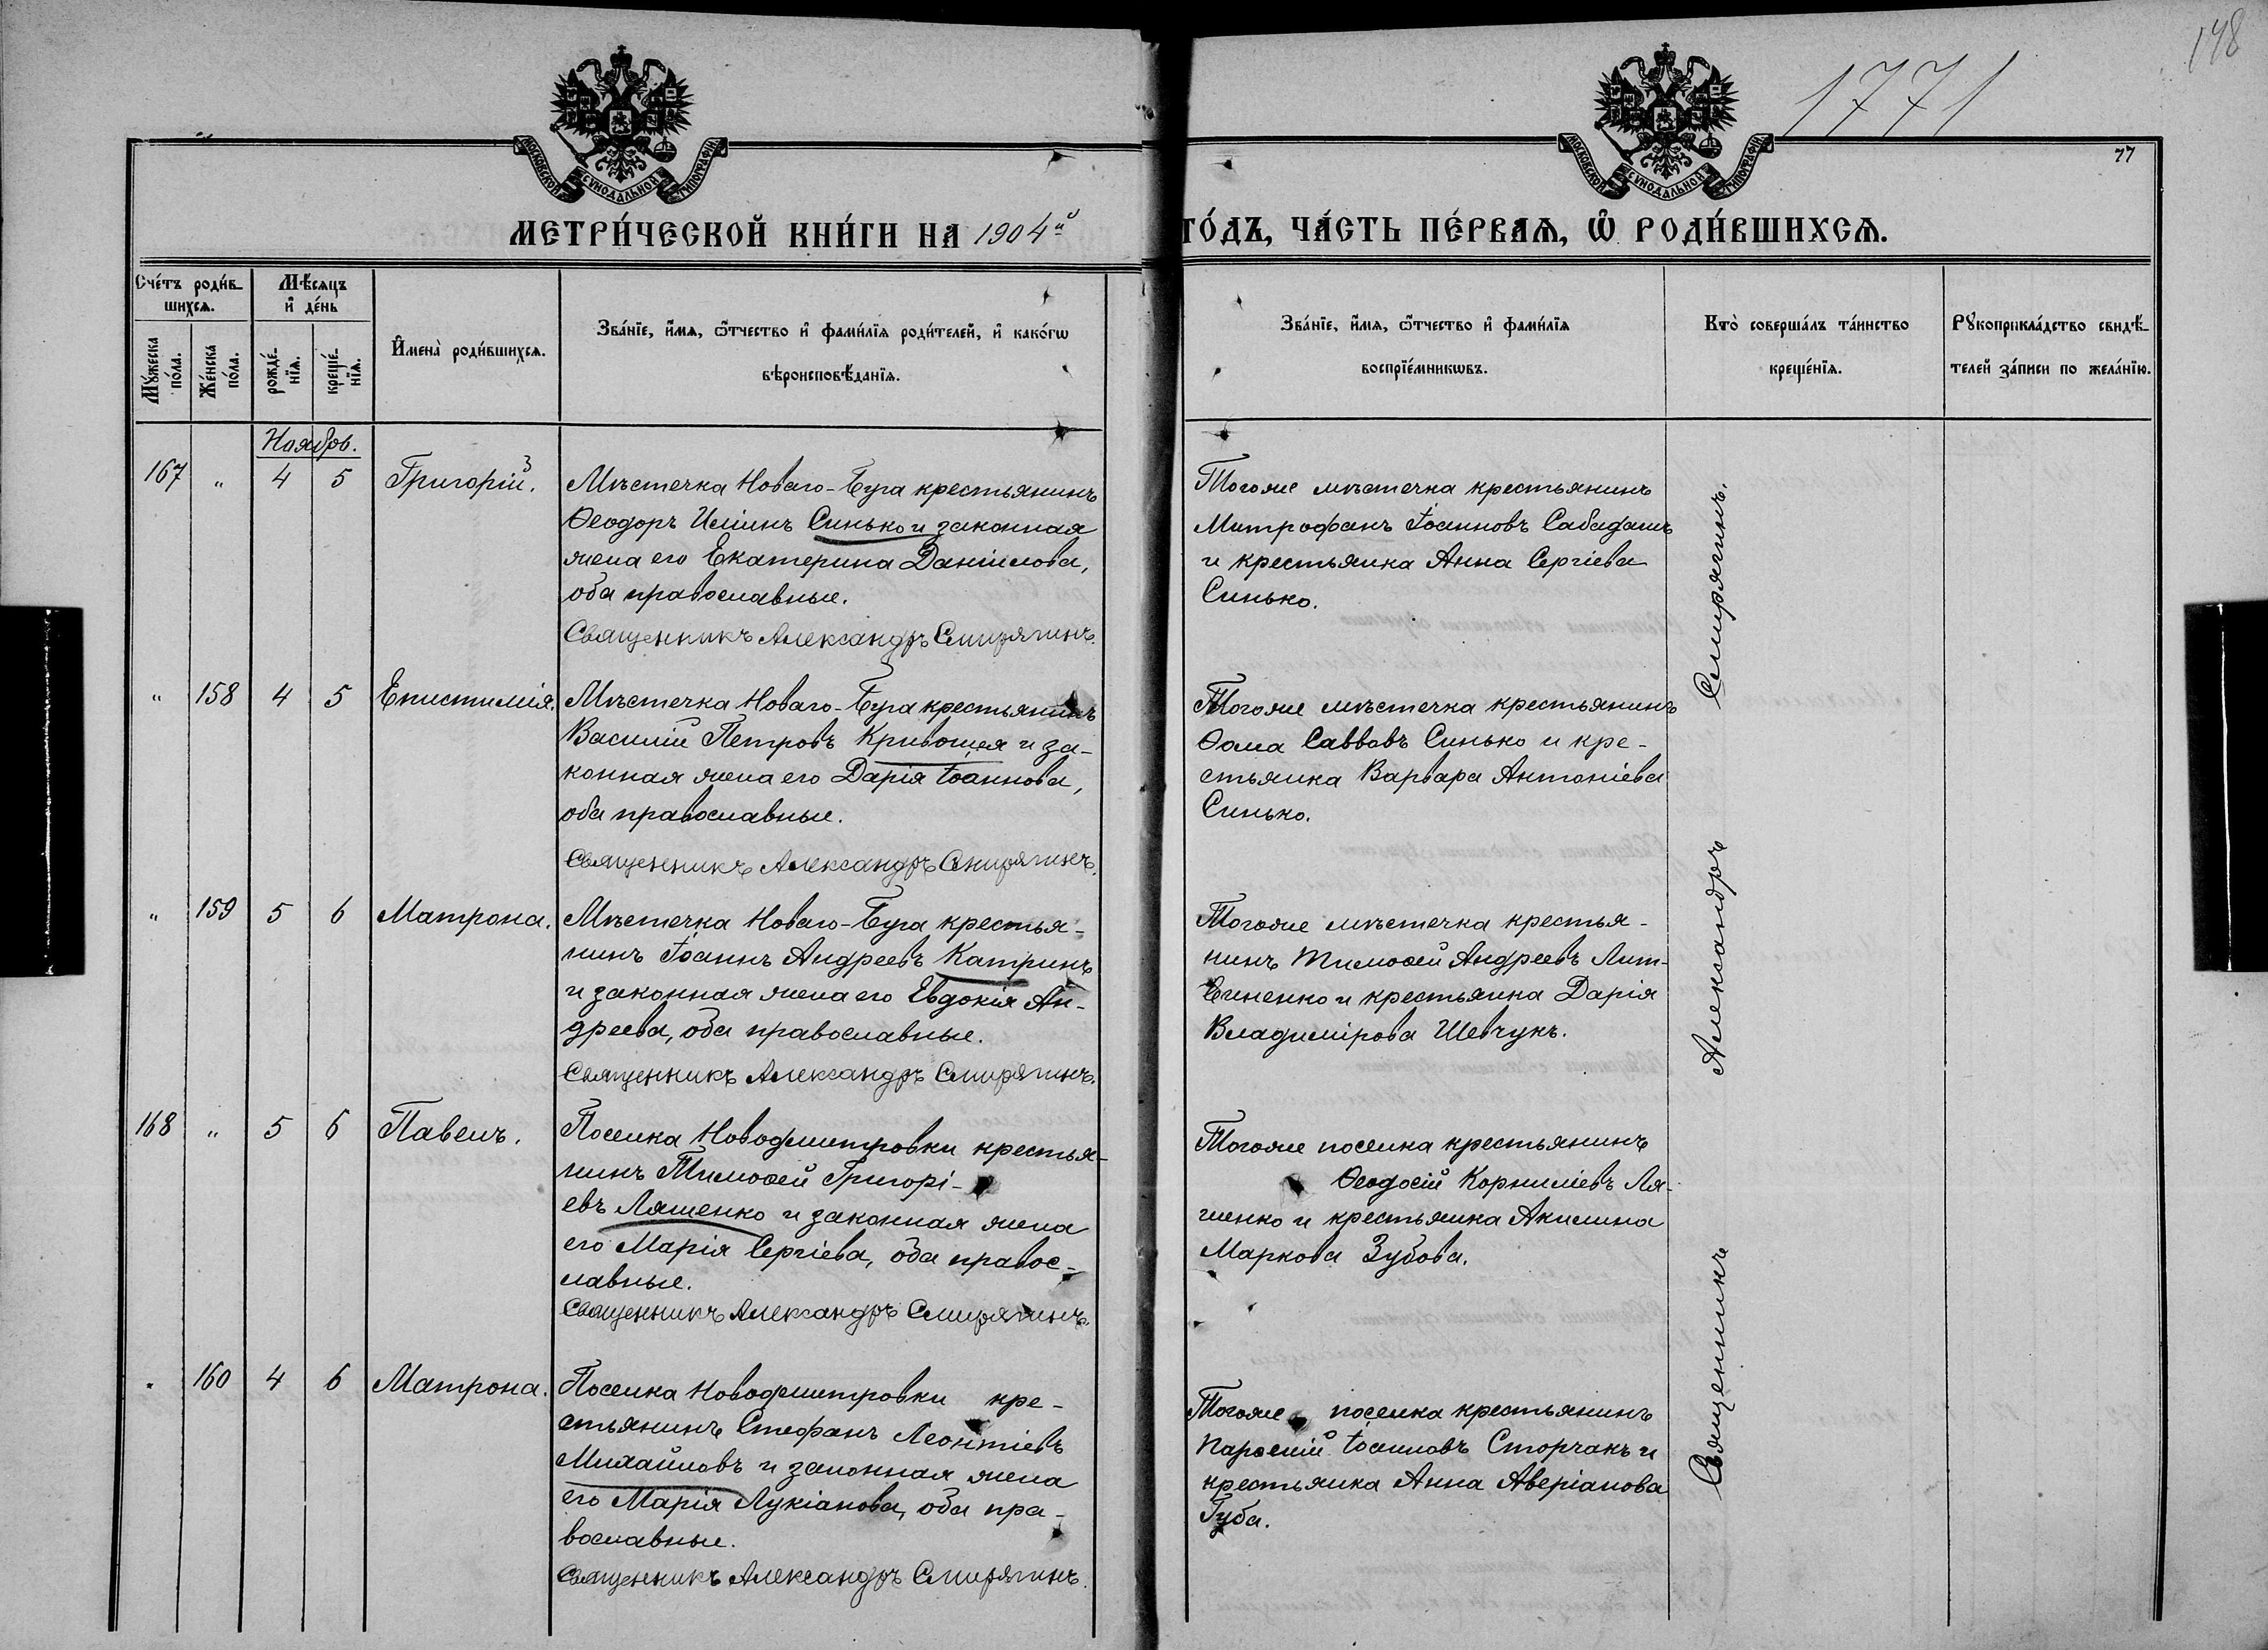 148
1771
77
МОСКОВСКОЙ СУНОДАЛЬНОЙ ТИПОГРАФІИ
МОСКОВСКОЙ СУНОДАЛЬНОЙ ТИПОГРАФІИ
МЕТРИ́ЧЕСКОЙ КНИ́ГИ НА 1904й
ГО́ДЪ, ЧА́СТЬ ПЕ́РВАѦ, Ѽ РОДИ́ВШИХСѦ.
Сче́тъ роди́в-
шихсѧ.
Мꙋ́жеска
по́ла.
Же́нска
по́ла.
Мѣ́сѧцъ
и҆ де́нь
рожде́-
нїѧ.
креще́-
нїѧ.
И҆мена̀ роди́вшихсѧ.
Зва́нїе, и҆́мѧ, ѻ҆́тчество и҆ фами́лїѧ роди́телей, и҆ како́гѡ
вѣроисповѣ́данїѧ.
Зва́нїе, и҆́мѧ, ѻ҆́тчество и҆ фами́лїѧ
воспрїе́мникѡвъ.
Кто̀ соверша́лъ та́инство
креще́нїѧ.
Рꙋкоприкла́дство свидѣ́-
телей за́писи по жела́нїю.
Ноябрь.
167 " 4 5 Григорій. 3
Мѣстечка Новаго-Буга крестьянинъ
Ѳеодоръ Иліинъ Синько и законная
жена его Екатерина Даніилова,
оба православные.
Священникъ Александръ Смирягинъ.
Тогоже мѣстечка крестьянинъ
Митрофанъ Іоанновъ Сабадашъ
и крестьянка Анна Сергіева
Синько.
" 158 4 5 Епистимія.
Мѣстечка Новаго-Буга крестьянинъ
Василій Петровъ Кривошея и за-
конная жена его Дарія Іоаннова,
оба православные.
Священникъ Александръ Смирягинъ.
Тогоже мѣстечка крестьянинъ
Ѳома Саввовъ Синько и кре-
стьянка Варвара Антоніева
Синько.
" 159 5 6 Матрона.
Мѣстечка Новаго-Буга крестья-
нинъ Іоаннъ Андреевъ Катринъ
и законная жена его Евдокія Ан-
дреева, оба православные.
Священникъ Александръ Смирягинъ.
Тогоже мѣстечка крестья-
нинъ Тимоѳей Андреевъ Лит-
виненко и крестьянка Дарія
Владимірова Шевчукъ.
168 " 5 6 Павелъ.
Поселка Новодмитровки крестья-
нинъ Тимоѳей Григорі-
евъ Ляшенко и законная жена
его Марія Сергіева, оба правос-
лавные.
Священникъ Александръ Смирягинъ.
Тогоже поселка крестьянинъ
Ѳеодосій Корниліевъ Ля-
шенко и крестьянка Акилина
Маркова Зубова.
" 160 4 6 Матрона.
Поселка Новодмитровки кре-
стьянинъ Стефанъ Леонтіевъ
Михайловъ и законная жена
его Марія Лукіанова, оба пра-
вославные.
Священникъ Александръ Смирягинъ.
Тогоже поселка крестьянинъ
Парѳеній Іоанновъ Сторчакъ и
крестьянка Анна Аверіанова
Губа.
Священникъ Александръ Смирягинъ.